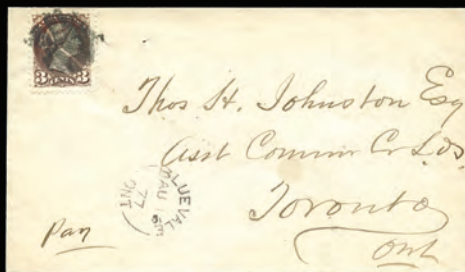 3 CENTS 3
Thos H. Johnston Esq
Asst Comm Cr Lds
Toronto
Ont
LUEVAL
AU
77
ONT